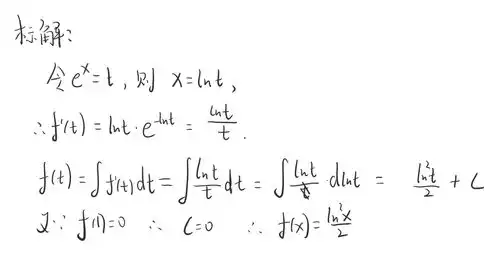 标解:
令 eˣ = t, 则 x = lnt,
∴ f'(t) = lnt · e^{-lnt} = \frac{lnt}{t}.
f(t) = ∫f'(t)dt = ∫\frac{lnt}{t}dt = ∫\frac{lnt}{} · dlnt = \frac{ln²t}{2} + C
又∵ f(1)=0 ∴ C=0 ∴ f(x) = \frac{ln²x}{2}